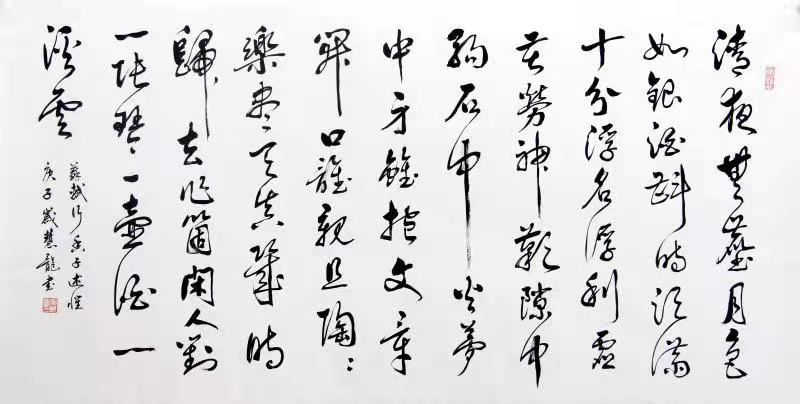 清夜無塵月色
如銀酒斟時須滿
十分浮名浮利虛
苦勞神歎隙中
駒石中火夢
中身雖抱文章
開口誰親且陶〻
樂盡天真幾時
歸去作箇閑人對
一張琴一壺酒一
溪雲
蘇軾行香子述懷
庚子歲慧龍書